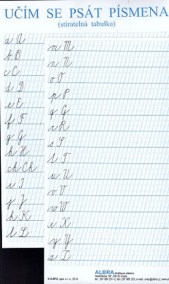 UČÍM SE PSÁT PÍSMENA
(stíratelná tabulka)
a A
b B
c C
d D
e E
f F
g G
h H
ch Ch
i I
j J
k K
l L
m M
n N
o O
p P
q Q
r R
s S
t T
u U
v V
w W
x X
y Y
z Z
ALBRA